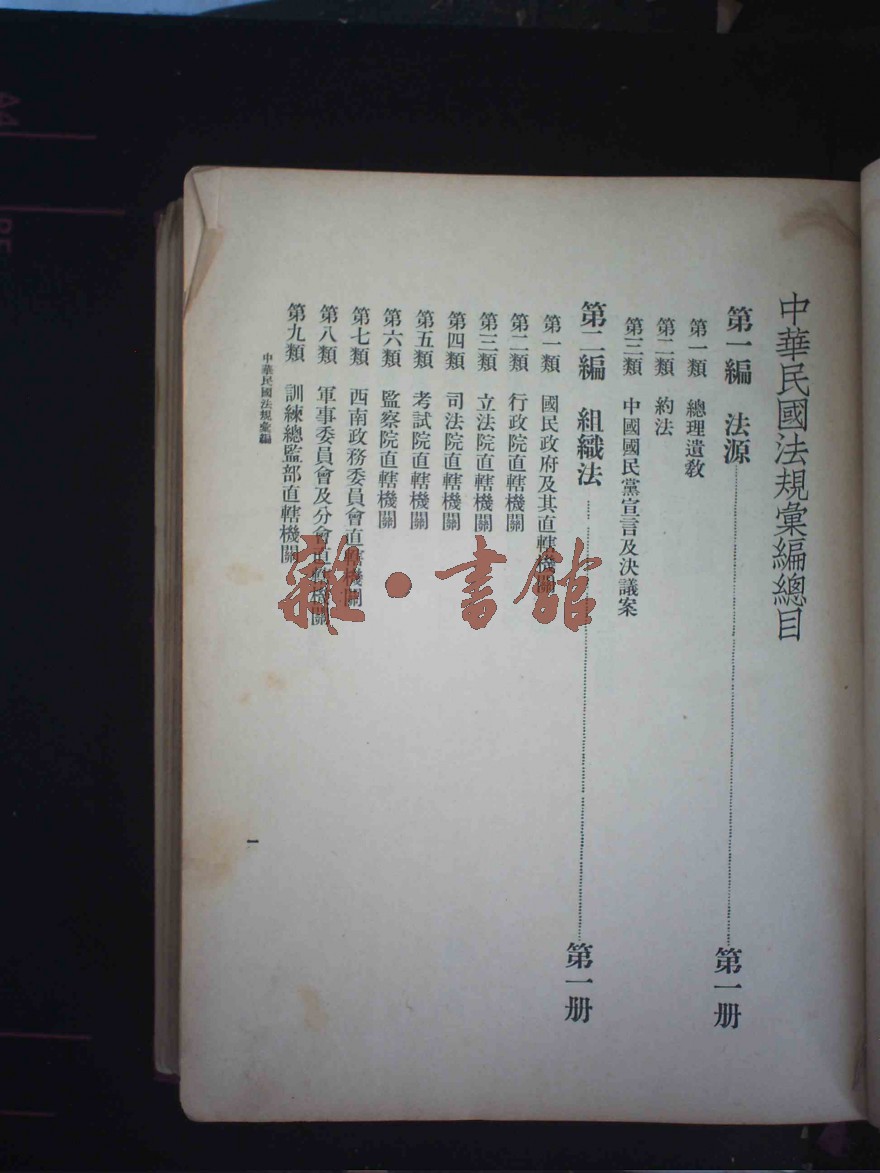 中華民國法規彙編總目
第一編　法源……第一册
第一類　總理遺敎
第二類　約法
第三類　中國國民黨宣言及決議案
第二編　組織法……第一册
第一類　國民政府及其直轄機關
第二類　行政院直轄機關
第三類　立法院直轄機關
第四類　司法院直轄機關
第五類　考試院直轄機關
第六類　監察院直轄機關
第七類　西南政務委員會直轄機關
第八類　軍事委員會及分會直轄機關
第九類　訓練總監部直轄機關
中華民國法規彙編
一
雜·書館